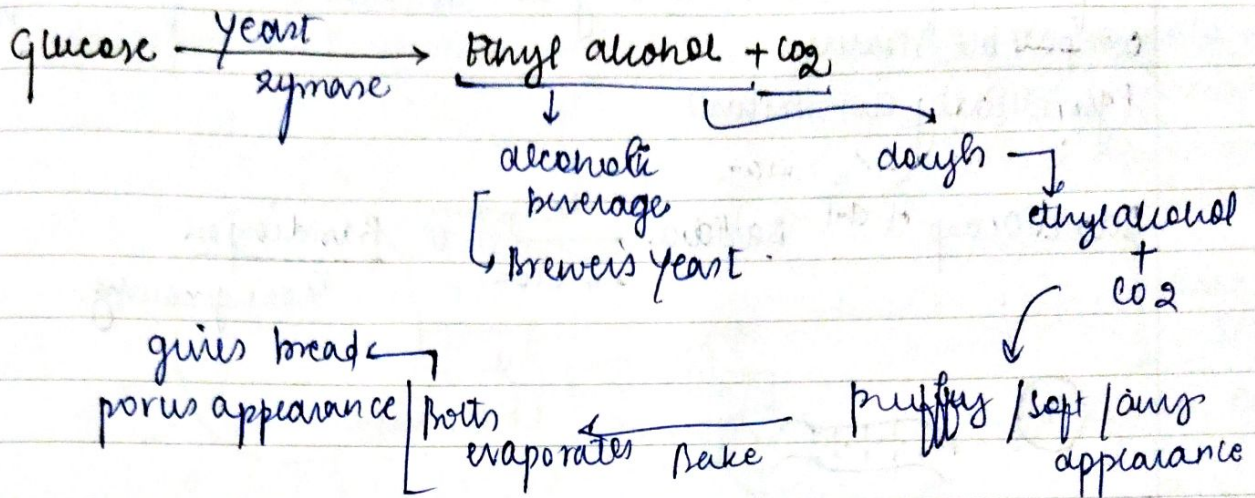 Glucose —yeast/zymase→ Ethyl alcohol + CO2
alcoholic
beverage
Brewer's yeast.
dough
ethyl alcohol
+
CO2
puffy / soft / airy
appearance
Bake
Both
evaporates
gives bread
porus appearance